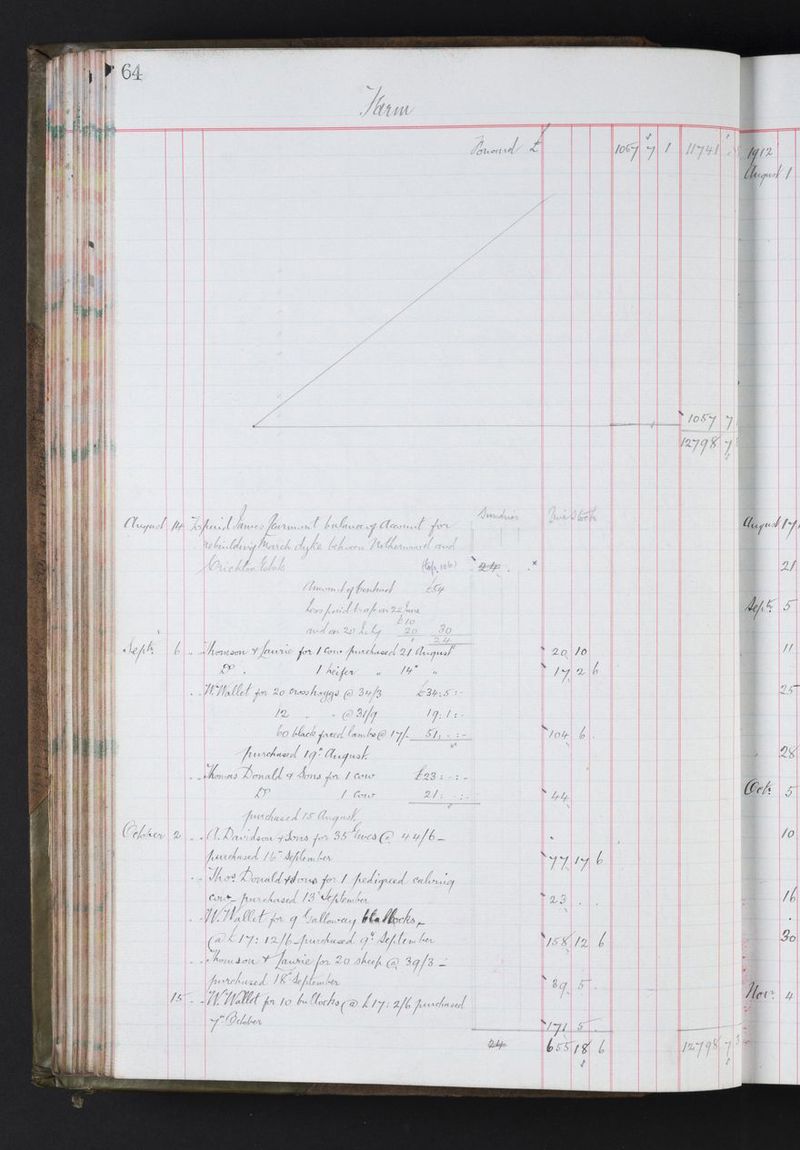 64
Farm
Forward £ 1057 7 1 11741
1057 7
12798 7
Sundries Live Stock
August 14 To paid James balancing Account for
rebuilding March dyke between Netherwood and
Crichton Estate 24
Amount of Contract £54
Less paid to a/c on 22 June £10
and on 20 July 20 30
24
Septr 6 Thomson & Laurie for 1 Cow purchased 21 August 20 10
Do. 1 heifer " 14th " 17 2 6
W. Wallet for 20 crosshoggs @ 34/3 £34:5:-
12 " " @ 31/9 19:1:-
60 black faced lambs @ 17/- 51:-:- 104 6
purchased 19th August
Thomas Donald & Sons for 1 cow £23:-:-
Do 1 Cow 21:-:- 44
purchased 15 August
October 2 A. Davidson & Sons for 35 Ewes @ 44/6 -
purchased 16th September 77 17 6
Thos. Donald & Sons for 1 pedigreed calving
cow - purchased 13th September 23 . .
W. Wallet for 9 Galloway bullocks -
@ £17:12/6 purchased 9th September 158 12 6
Thomson & Laurie for 20 sheep @ 39/3 -
purchased 18th September 39 5 .
15 W. Wallet for 10 bullocks @ £17:2/6 purchased
7th October 171 5 .
24 655 18 6 12798 7
1912
August 1
August 17
21
Septr 5
11
25
28
Octr 5
10
16
30
Novr 4